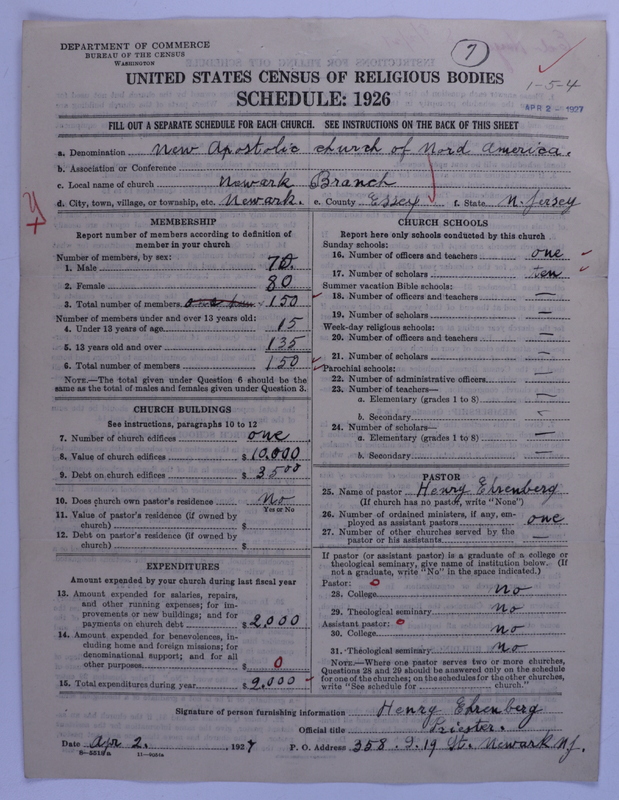 DEPARTMENT OF COMMERCE
BUREAU OF THE CENSUS
WASHINGTON
7
UNITED STATES CENSUS OF RELIGIOUS BODIES
SCHEDULE: 1926
1-5-4
APR 2 - 1927
FILL OUT A SEPARATE SCHEDULE FOR EACH CHURCH. SEE INSTRUCTIONS ON THE BACK OF THIS SHEET
a. Denomination New Apostolic church of Nord America.
b. Association or Conference
c. Local name of church Newark Branch
d. City, town, village, or township, etc. Newark. e. County Essex f. State N. Jersey
MEMBERSHIP
Report number of members according to definition of
member in your church
Number of members, by sex:
1. Male 70.
2. Female 80
3. Total number of members 150
Number of members under and over 13 years old:
4. Under 13 years of age 15
5. 13 years old and over 135
6. Total number of members 150
NOTE.—The total given under Question 6 should be
same as the total of males and females given under Question 3.
CHURCH BUILDINGS
See instructions, paragraphs 10 to 12
7. Number of church edifices one
8. Value of church edifices $ 10,000
9. Debt on church edifices $ 3500
10. Does church own pastor's residence No
Yes or No
11. Value of pastor's residence (if owned by
church) $
12. Debt on pastor's residence (if owned by
church) $
EXPENDITURES
Amount expended by your church during last fiscal year
13. Amount expended for salaries, repairs,
and other running expenses; for im-
provements or new buildings; and for
payments on church debt $ 2,000
14. Amount expended for benevolences, in-
cluding home and foreign missions; for
denominational support; and for all
other purposes $ 0
15. Total expenditures during year $ 2,000
CHURCH SCHOOLS
Report here only schools conducted by this church
Sunday schools:
16. Number of officers and teachers one
17. Number of scholars ten
Summer vacation Bible schools:
18. Number of officers and teachers —
19. Number of scholars —
Week-day religious schools:
20. Number of officers and teachers —
21. Number of scholars —
Parochial schools:
22. Number of administrative officers —
23. Number of teachers—
a. Elementary (grades 1 to 8) —
b. Secondary -
24. Number of scholars—
a. Elementary (grades 1 to 8) —
b. Secondary —
PASTOR
25. Name of pastor Henry Ehrenberg
(If church has no pastor, write "None")
26. Number of ordained ministers, if any, em-
ployed as assistant pastors one
27. Number of other churches served by the
pastor or his assistants —
If pastor (or assistant pastor) is a graduate of a college or
theological seminary, give name of institution below. (If
not a graduate, write "No" in the space indicated.)
Pastor: 0
28. College no
29. Theological seminary No
Assistant pastor: 0
30. College no
31. Theological seminary No
NOTE.—Where one pastor serves two or more churches,
Questions 28 and 29 should be answered only on the schedule
for one of the churches; on the schedules for the other churches,
write "See schedule for church."
Signature of person furnishing information Henry Ehrenberg
Official title Priester.
Date Apr 2. , 1927 P. O. Address 358. S. 19 St. Newark NJ.